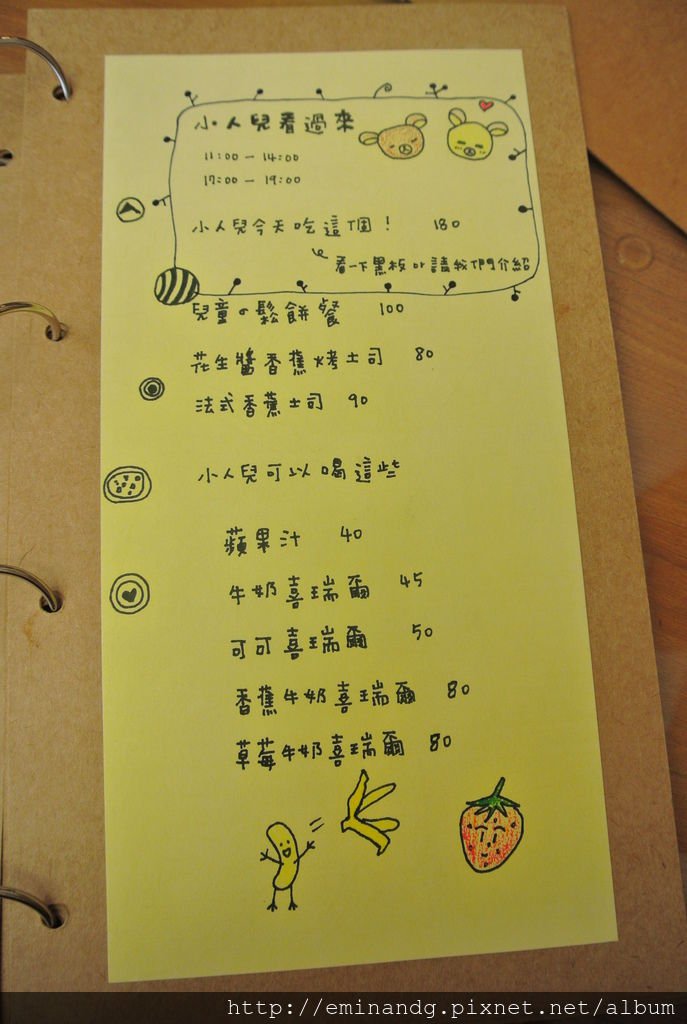 小人兒看過來
11:00 - 14:00
17:00 - 19:00
小人兒今天吃這個! 180
看一下黑板 or 請我們介紹
兒童の鬆餅餐 100
花生醬香蕉烤土司 80
法式香蕉土司 90
小人兒可以喝這些
蘋果汁 40
牛奶喜瑞爾 45
可可喜瑞爾 50
香蕉牛奶喜瑞爾 80
草莓牛奶喜瑞爾 80
http://eminandg.pixnet.net/album